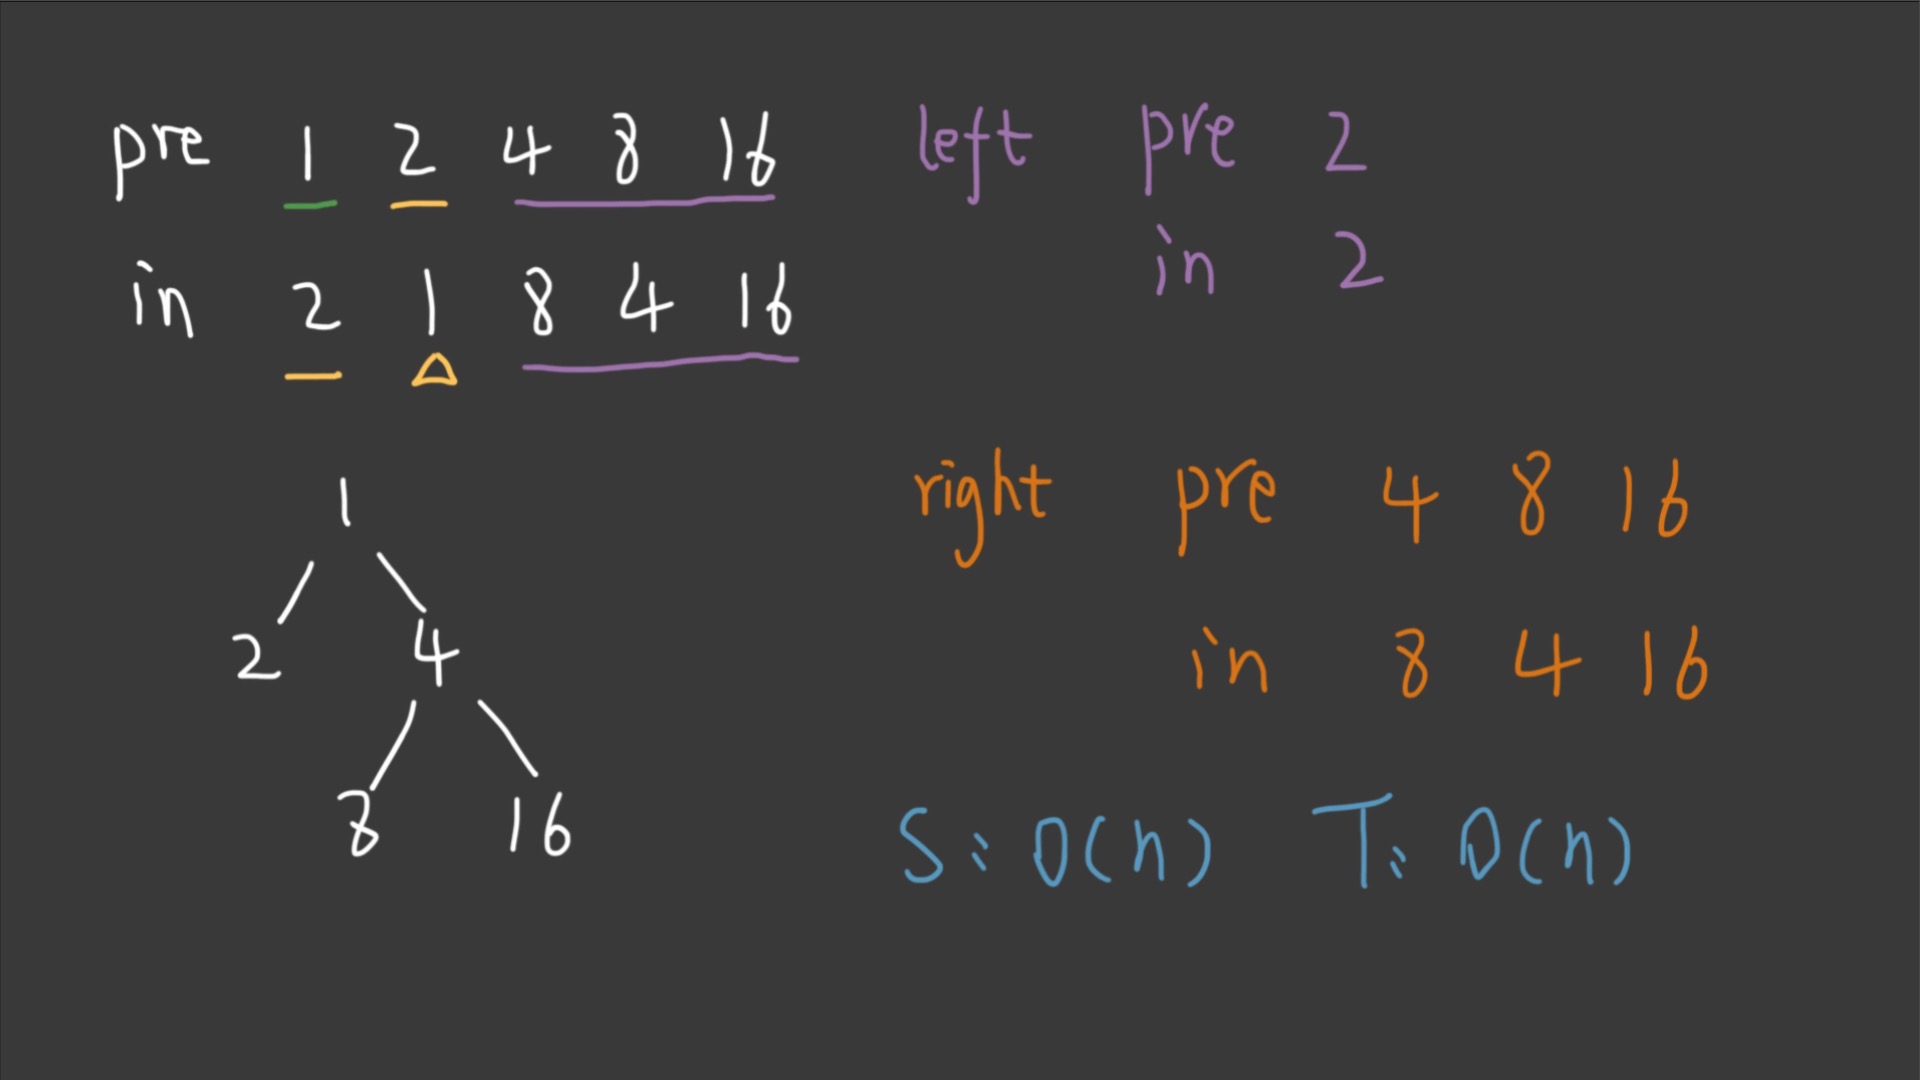 pre 1 2 4 8 16
in 2 1 8 4 16
1
2 4
8 16
left pre 2
in 2
right pre 4 8 16
in 8 4 16
S: O(n) T: O(n)